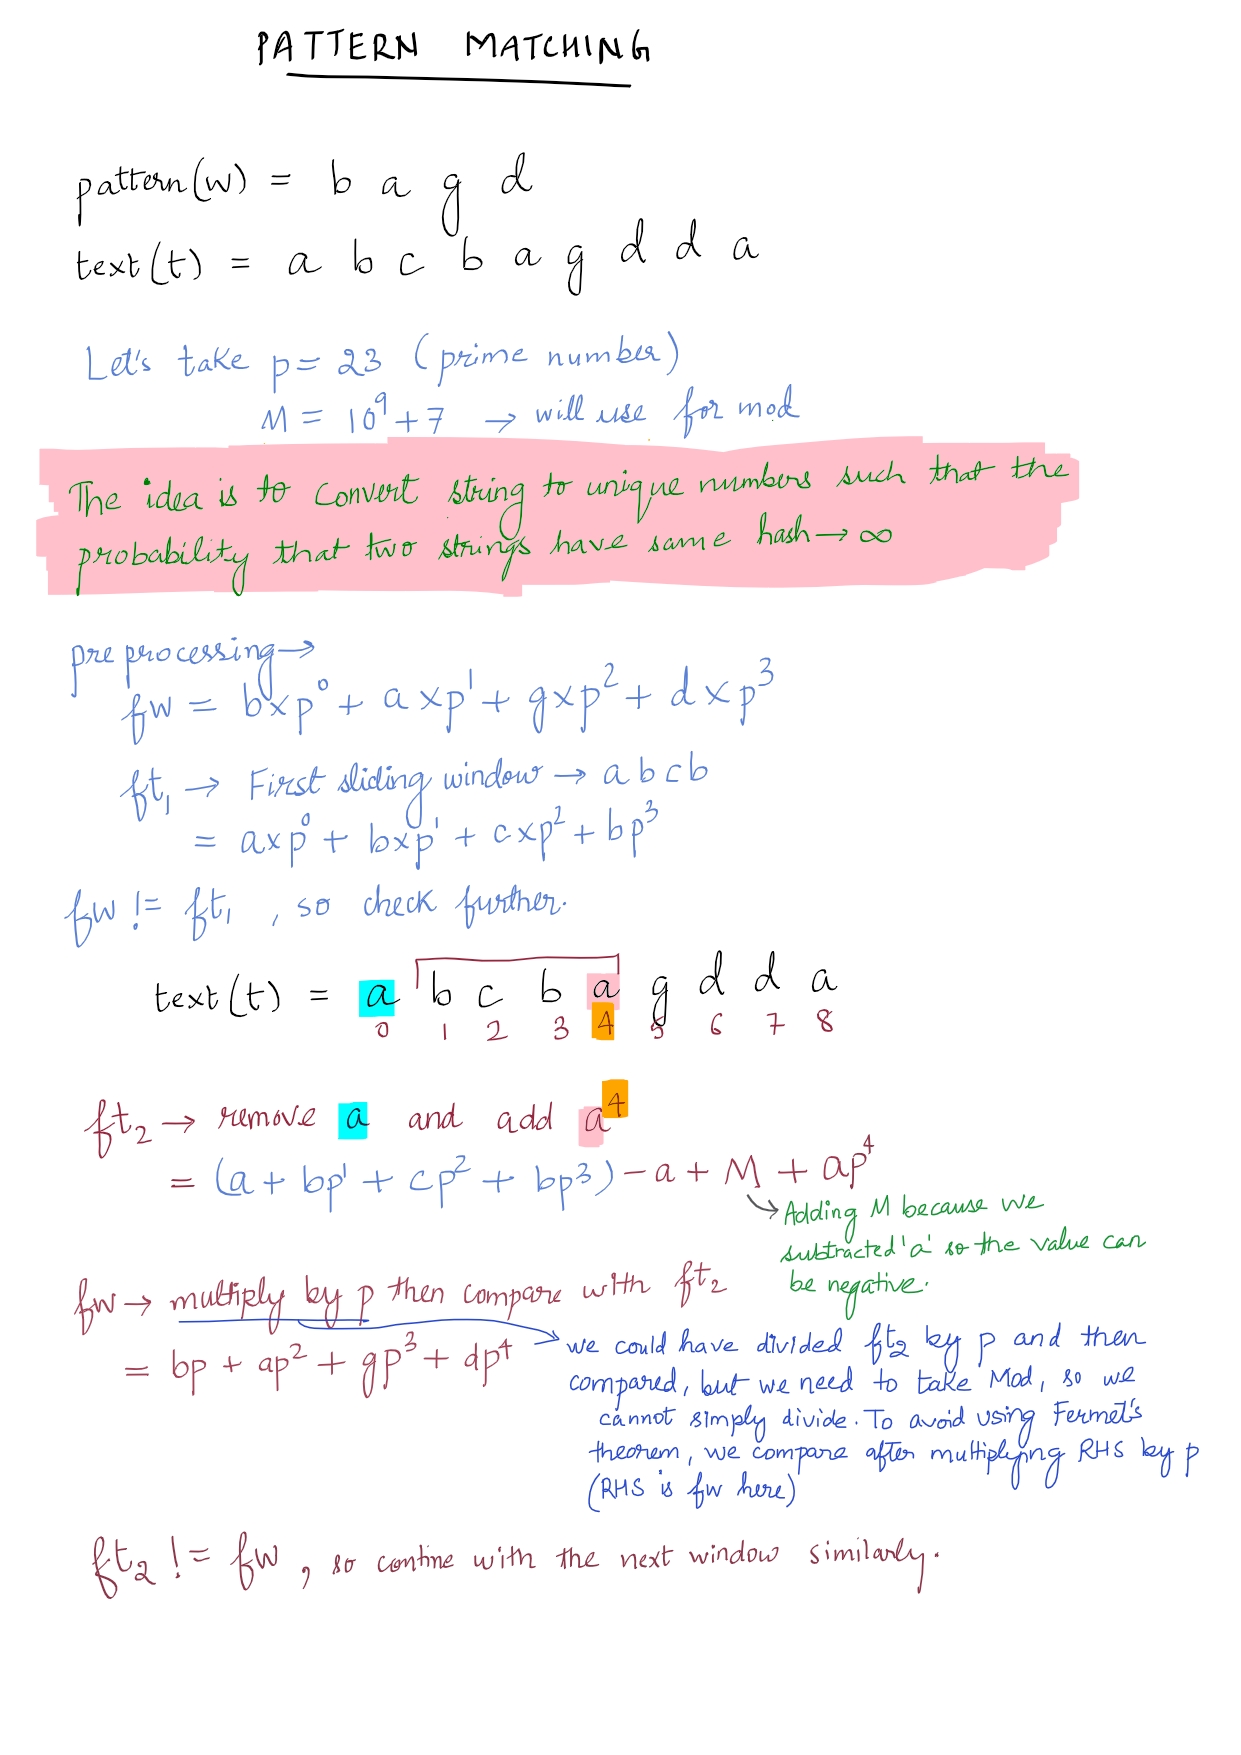 PATTERN MATCHING
pattern(w) = b a g d
text(t) = a b c b a g d d a
Let's take p = 23 (prime number)
M = 10⁹+7 → will use for mod
The idea is to convert string to unique numbers such that the
probability that two strings have same hash → ∞
preprocessing →
fw = b×p⁰ + a×p¹ + g×p² + d×p³
ft₁ → First sliding window → a b c b
= a×p⁰ + b×p¹ + c×p² + bp³
fw != ft₁ , so check further.
text(t) = a b c b a g d d a
0 1 2 3 4 5 6 7 8
ft₂ → remove a and add a⁴
= (a + bp¹ + cp² + bp³) - a + M + ap⁴
→ Adding M because we
subtracted 'a' so the value can
be negative.
fw → multiply by p then compare with ft₂
= bp + ap² + gp³ + dp⁴
→ we could have divided ft₂ by p and then
compared, but we need to take Mod, so we
cannot simply divide. To avoid using Fermet's
theorem, we compare after multiplying RHS by p
(RHS is fw here)
ft₂ != fw , so contine with the next window similarly.